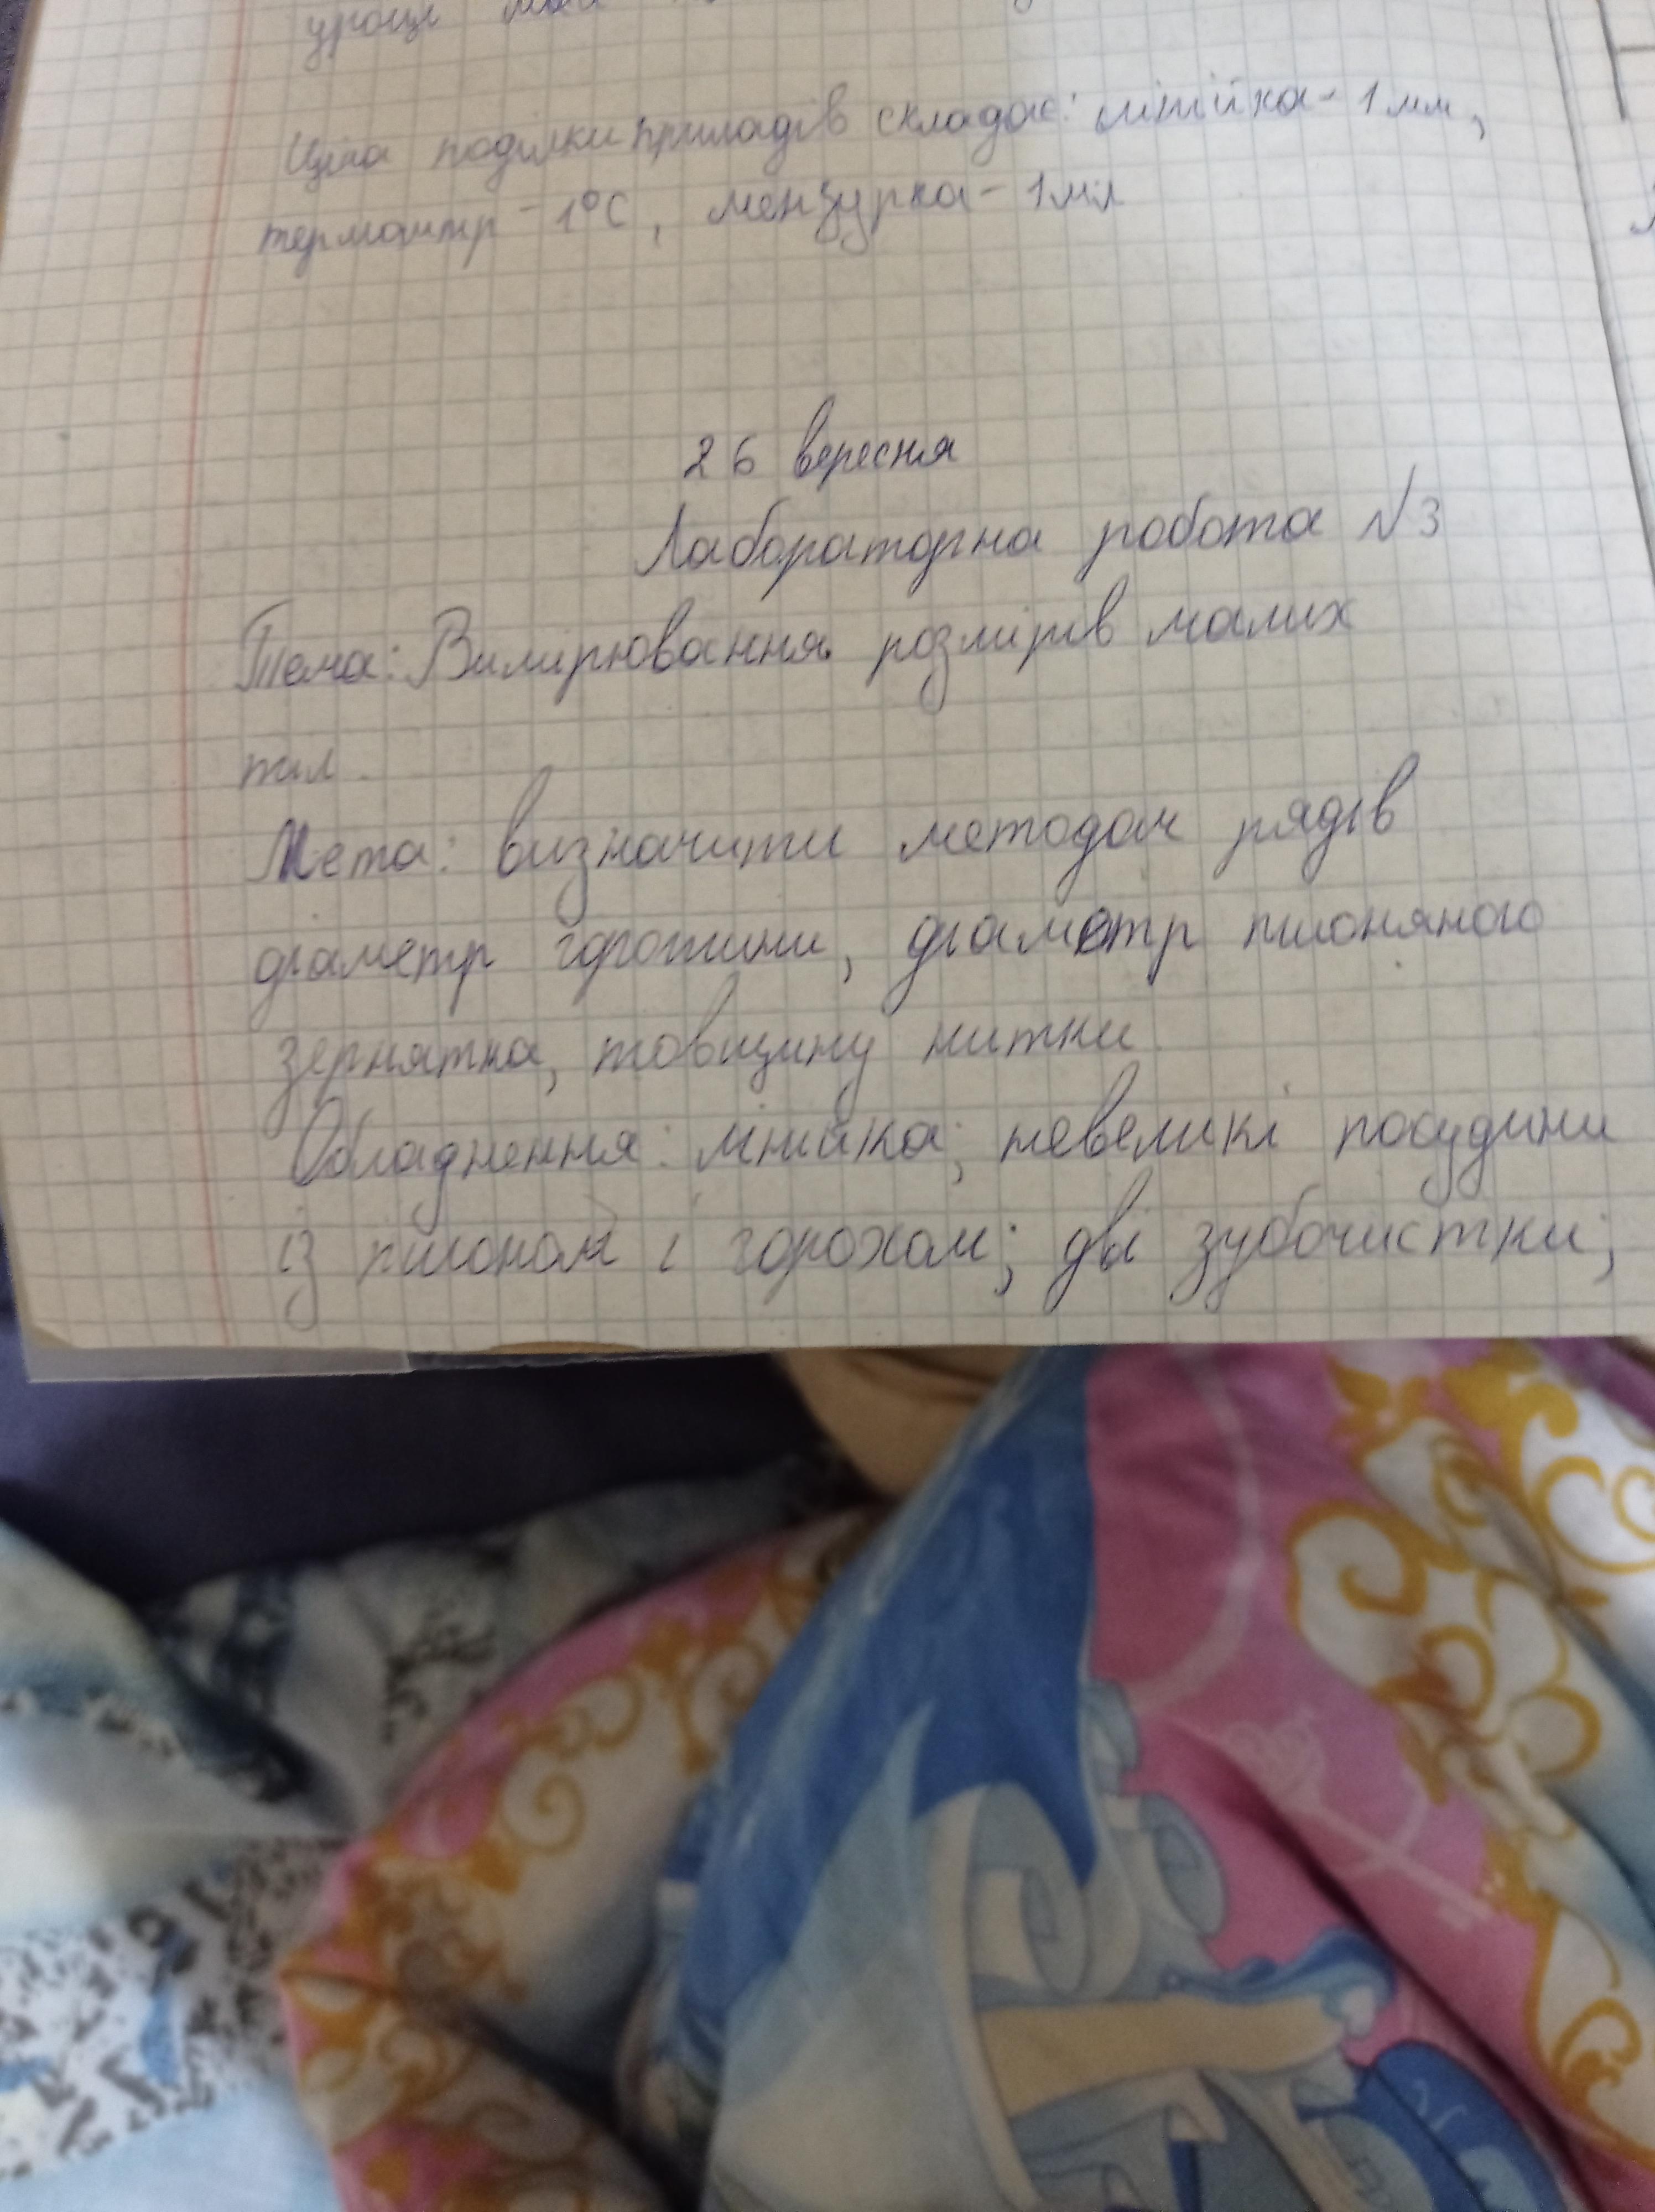 уроці
Ціна поділки приладів складає: лінійка - 1 мм,
термометр - 1°C, мензурка - 1 мл
26 вересня
Лабораторна робота №3
Тема: Вимірювання розмірів малих
тіл.
Мета: визначити методом рядів
діаметр горошини, діаметр пшоняного
зернятка, товщину нитки
Обладнення: лінійка; невеликі посудини
із пшоном і горохом; дві зубочистки;